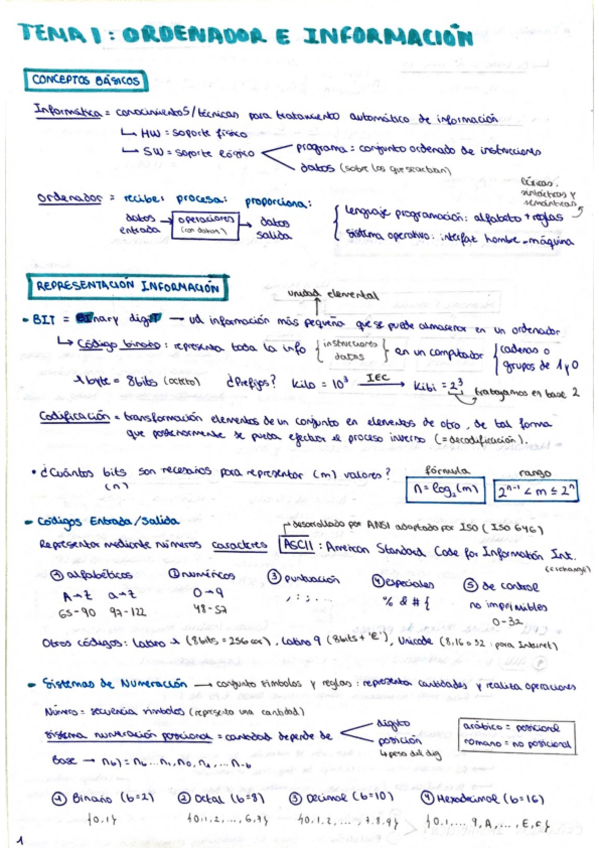 TEMA 1: ORDENADOR E INFORMACIÓN
CONCEPTOS BÁSICOS
Informática = conocimientos/técnicas para tratamiento automático de información
↳ HW = soporte físico
↳ SW = soporte lógico
programa = conjunto ordenado de instrucciones
datos (sobre los que se actúan)
Ordenador = recibe: procesa: proporciona:
datos entrada → operaciones (con datos) → datos salida
léxicas, sintácticas y semánticas
lenguaje programación: alfabeto + reglas
sistema operativo: interfaz hombre-máquina
REPRESENTACIÓN INFORMACIÓN
unidad elemental
• BIT = BInary digiT → ud información más pequeña que se puede almacenar en un ordenador
↳ Código binario: representa toda la info { instrucciones datos } en un computador { cadenas o grupos de 1 y 0
1 byte = 8bits (octeto) ¿Prefijos? Kilo = 10³ IEC → Kibi = 2³ trabajamos en base 2
Codificación = transformación elementos de un conjunto en elementos de otro, de tal forma
que posteriormente se pueda efectuar el proceso inverso (= decodificación).
• ¿Cuántos bits son necesarios para representar (m) valores?
(n)
fórmula
n = log₂(m)
rango
2ⁿ⁻¹ < m ≤ 2ⁿ
• Códigos Entrada/Salida
desarrollado por ANSI adaptado por ISO (ISO 646)
Representar mediante números caracteres ASCII: American Standard Code for Information Int.
(exchange)
⓪ alfabéticos ① numéricos ③ puntuación ④ especiales ⑤ de control
A→Z a→z 0→9 , : ; ... % & # { no imprimibles
65-90 97-122 48-57 0-32
Otros códigos: Latino 1 (8bits = 256 car), Latino 9 (8bits + '€'), Unicode (8,16 o 32: para Internet)
• Sistemas de Numeración → conjunto símbolos y reglas: representa cantidades y realiza operaciones
Número = secuencia símbolos (representa una cantidad)
Sistema numeración posicional = cantidad depende de
dígito
posición
↳ peso del dig
arábico = posicional
romano = no posicional
① Binario (b=2) ② Octal (b=8) ③ Decimal (b=10) ④ Hexadecimal (b=16)
{0,1} {0,1,2,...,6,7} {0,1,2,...,7,8,9} {0,1,...9,A,...,E,F}
1